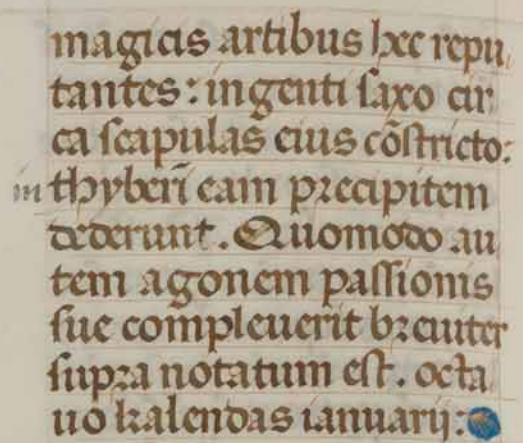 magicis artibus hec repu
tantes: ingenti saxo cir
ca scapulas eius cõstricto:
in thyberĩ eam precipitem
dederunt. Quomodo au
tem agonem passionis
sue compleuerit breuiter
supra notatum est. octa
uo kalendas ianuarij: